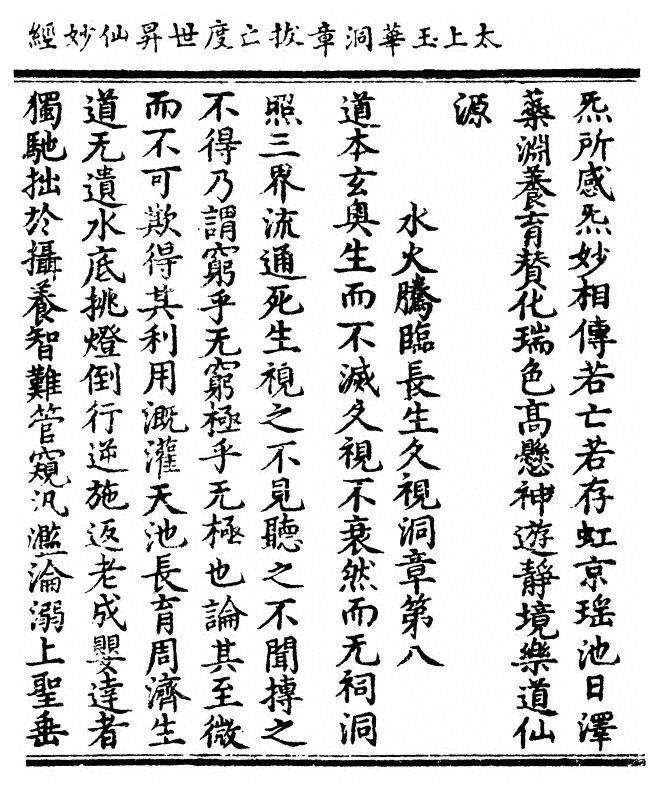 太上玉華洞章拔亡度世昇仙妙經
炁所感炁妙相傳若亡若存虹京瑤池日澤
蘂淵養育贊化瑞色高懸神遊靜境樂道仙
源
水火騰臨長生久視洞章第八
道本玄奧生而不滅久視不衰然而无祠洞
照三界流通死生視之不見聽之不聞摶之
不得乃謂窮乎无窮極乎无極也論其至微
而不可欺得其利用溉灌天池長育周濟生
道无遺水底挑燈倒行逆施返老成嬰達者
獨馳拙於攝養智難管窺汎濫淪溺上聖垂